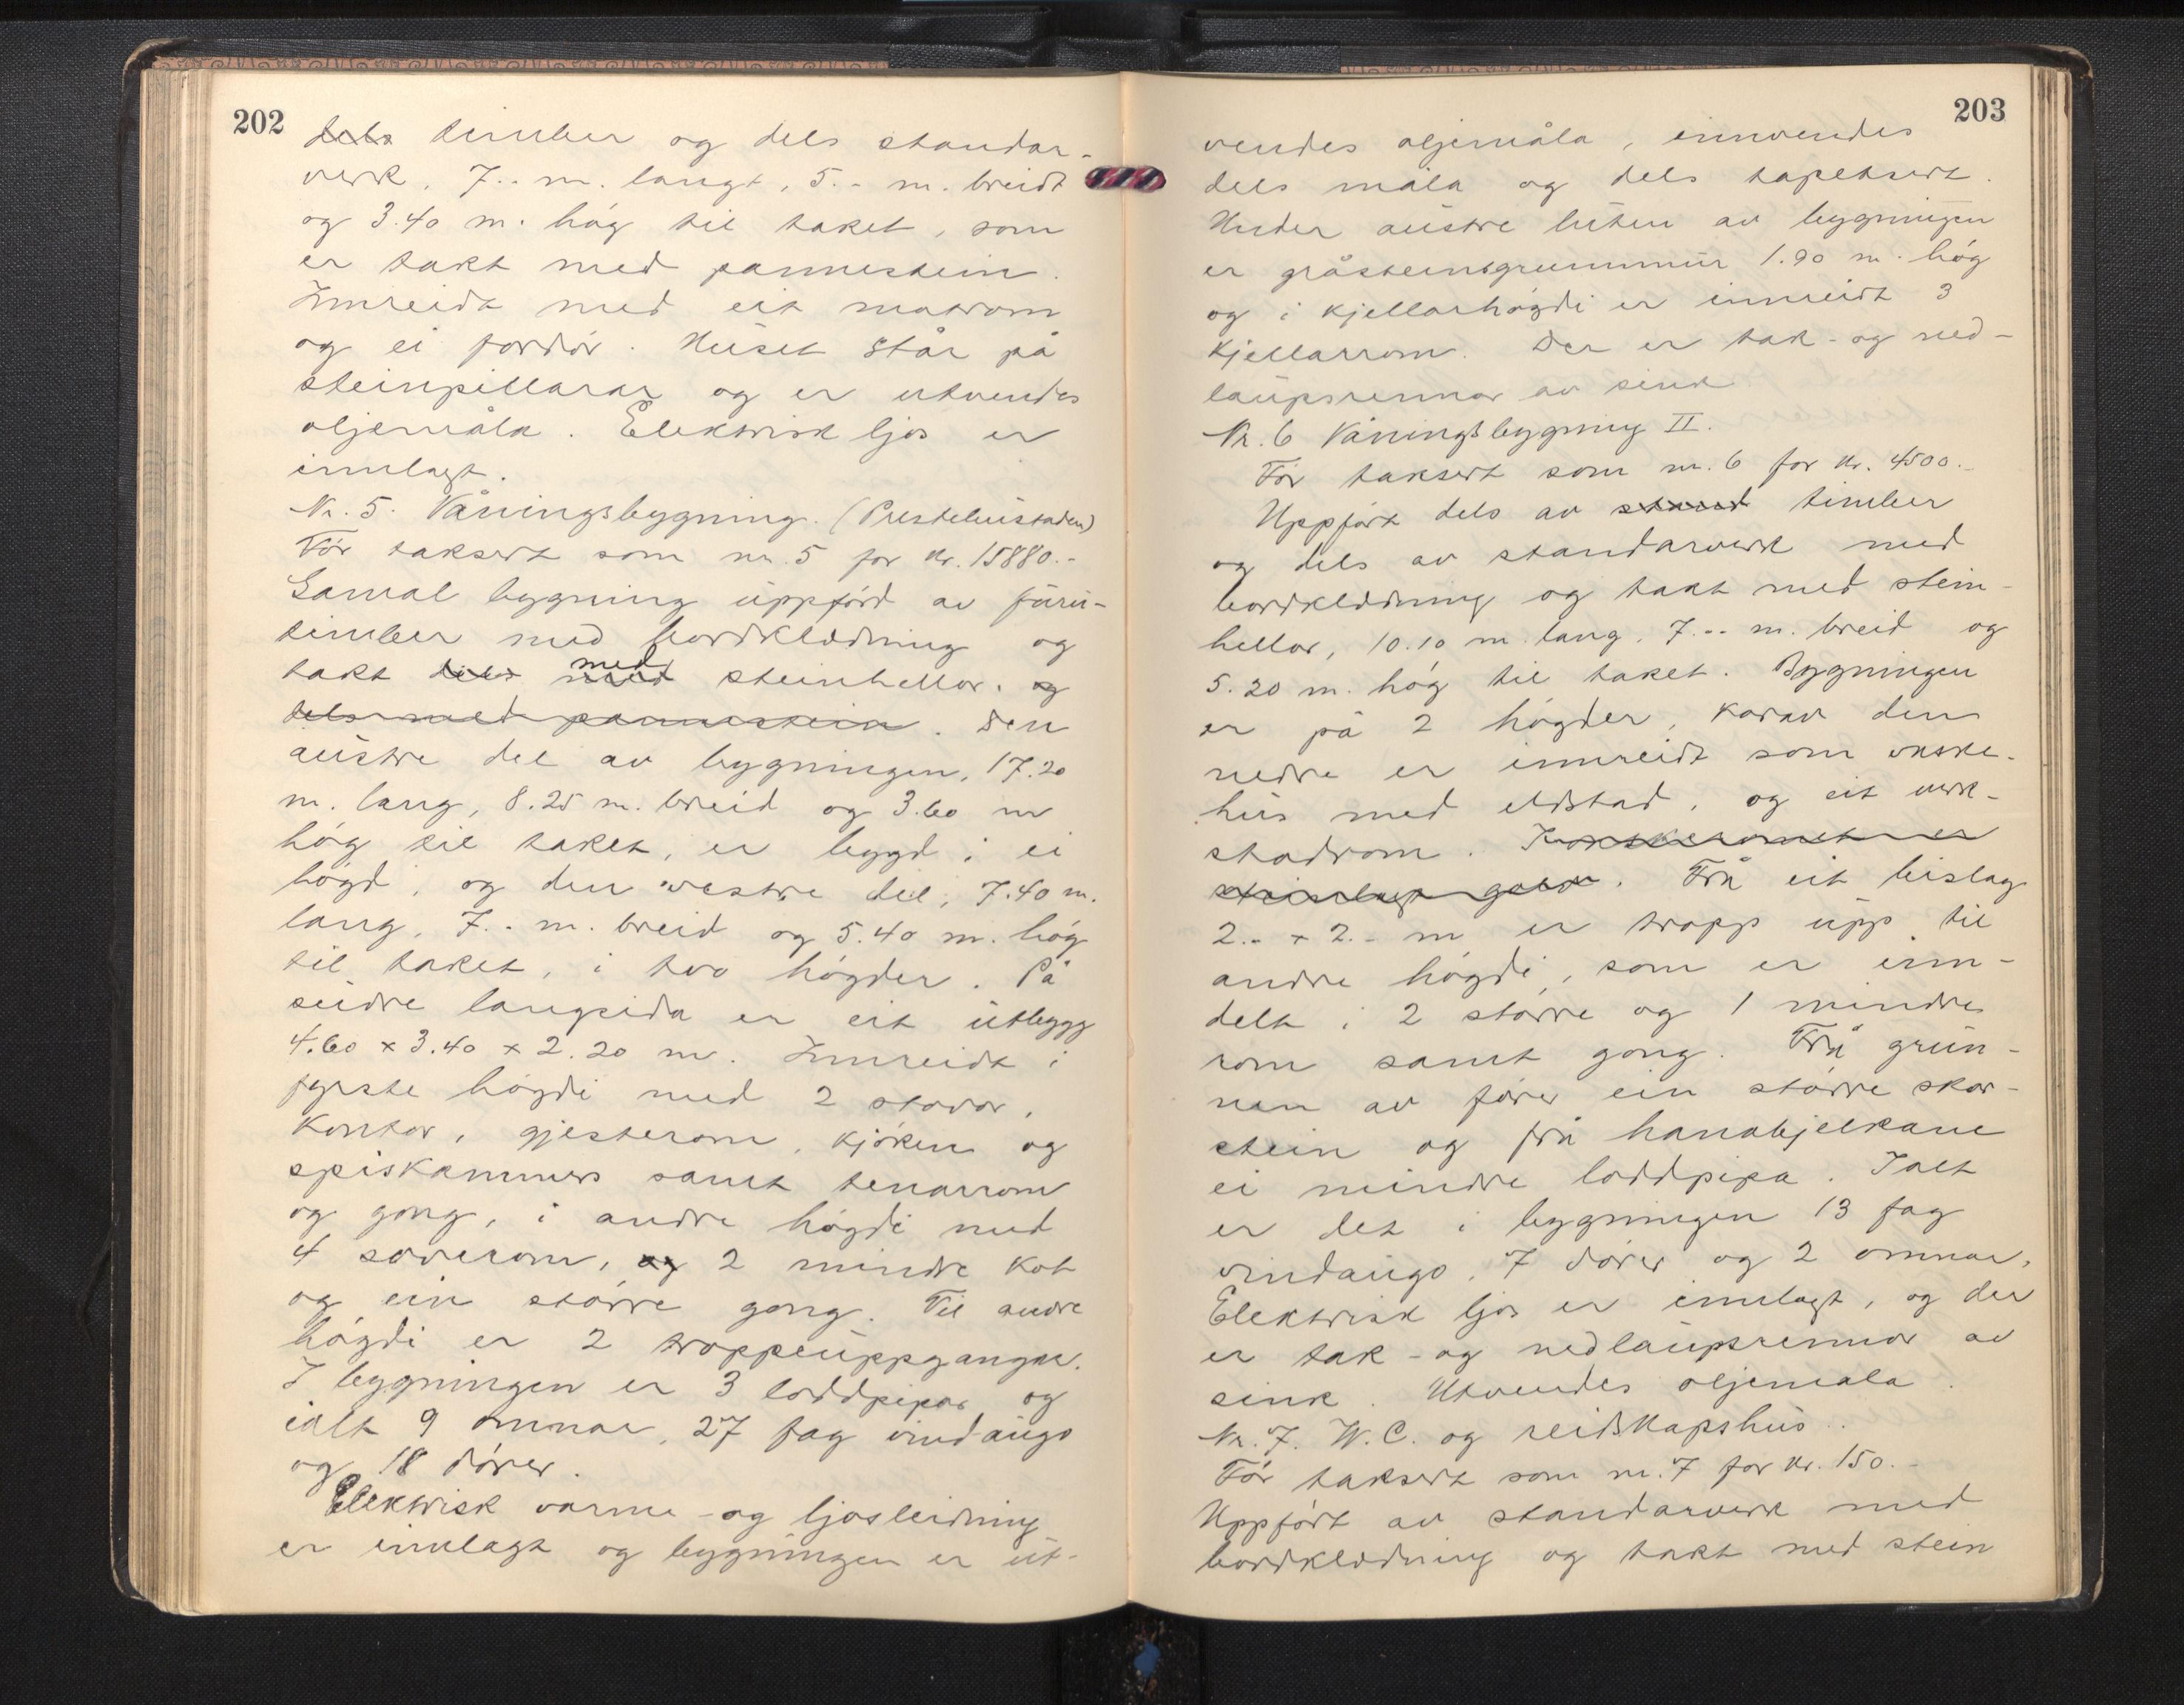 202
dels timber og dels standar-
verk, 7.- m. langt, 5.- m. breidt
og 3.40 m. høg til taket, som
er takt med pannestein.
Innreidt med eit matrom
og ei fordør. Huset står på
steinpillarar og er utvendes
oljemåla. Elektrisk ljos er
innlagt.
Nr. 5. Våningsbygning. (Prestebustaden)
Før taksert som nr. 5 for kr. 15880.-
Gamal bygning uppførd av furu-
timber med bordklædning og
takt dels med med steinhellor. og
dels med pannestein. Den
austre del av bygningen, 17.20
m. lang, 8.25 m. breid og 3.60 m
høg til taket, er bygd i ei
høgd, og den vestre del, 7.40 m.
lang, 7.- m. breid og 5.40 m. høg
til taket, i tvo høgder. På
sudre langsida er eit utbygg
4.60 x 3.40 x 2.20 m. Innreidt i
fyrste høgdi med 2 stovor,
kontor, gjesterom, kjøken og
spiskammers samt tenarrom
og gong, i andre høgdi med
4 soverom, og 2 mindre kot
og ein større gong. Til andre
høgdi er 2 troppeuppgangar.
I bygningen er 3 loddpipor og
ialt 9 omnar, 27 fag vindaugo
og 18 dører.
Elektrisk varme- og ljosleidning
er innlagt og bygningen er ut-
203
vendes oljemåla, innvendes
dels måla og dels tapetsert.
Under austre luten av bygningen
er gråsteinsgrunnmur 1.90 m. høg
og i kjellarhøgdi er innreidt 3
kjellarrom. Der er tak- og ned-
laupsrennor av sink
Nr. 6 Våningsbygning II.
Før taksert som nr. 6 for kr. 4500.-
Uppført dels av stand timber
og dels av standarverk med
bordklædning og takt med stein-
hellor, 10.10 m. lang, 7.- m. breid og
5.20 m. høg til taket. Bygningen
er på 2 høgder, korav den
nedre er innreidt som vaske-
hus med eldstad, og eit verk-
stadrom. I vaskeromet er
steinlagt golv. Frå eit bislag
2.- x 2.- m er tropp upp til
andre høgdi, som er inn-
delt i 2 større og 1 mindre
rom samt gong. Frå grun-
nen av fører ein større skor-
stein og frå hanabjelkane
ei mindre loddpipa. Ialt
er det i bygningen 13 fag
vindaugo, 7 dører og 2 omnar,
Elektrisk ljos er innlagt, og der
er tak- og nedlaupsrennor av
sink. Utvendes oljemala.
Nr. 7. W.C. og reidskapshus.
Før taksert som nr. 7 for kr. 150.-
Uppført av standarverk med
bordklædning og takt med stein